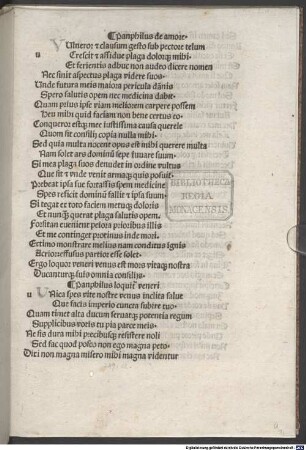 Panphilus de amore·
Ulneror ⁊ clausum gesto sub pectore telum
u Crescit ⁊ assidue plaga dolorqꝫ mihi·
Et ferientis adhuc non audeo dicere nomen
Nec sinit aspectus plaga videre suos·
Unde futura meis maiora pericula dānis
Spero salutis opem nec medicina dabit·
Quam prius ipse viam meliorem carpere possem
Heu mihi quid faciam non bene certus eo·
Conqueror estqꝫ mee iustissima causa querele
Quom sit consilij copia nulla mihi·
Sed quia multa nocent opus est mihi querere multa
Nam solet ars dominū sepe iuuare suum·
Si mea plaga suos denudet in ordine vultus
Que sit ⁊ vnde venit armaqꝫ quis posuit·
Prebeat ipsa sue forrassis spem medicine
Spes reficit dominū fallit ⁊ ipsa suum·
Si tegat et toto faciem metuqꝫ doloris
Et nunqꝫ querat plaga salutis opem·
Forsitan eueniet peiora prioribus illis
Et me continget protinus inde mori·
Extimo monstrare melius nam conditus ignis
Acrior effusus parcior esse solet·
Ergo loquar veneri venus est mors vitaqꝫ nostra
Ducanturqꝫ suis omnia consilijs·
Panphilus loquit᷑ veneri
u Nica spes vite nostre venus inclita salue
Que facis imperio cuncta subire tuo·
Quam timet alta ducum seruatqꝫ potentia regum
Supplicibus votis tu pia parce meis·
Ne sis dura mihi precibusqꝫ resistere noli
Sed fac quod posco non ego magna peto·
Dixi non magna misero mihi magna videntur
BIBLIOTHECA
REGIA
MONACENSIS